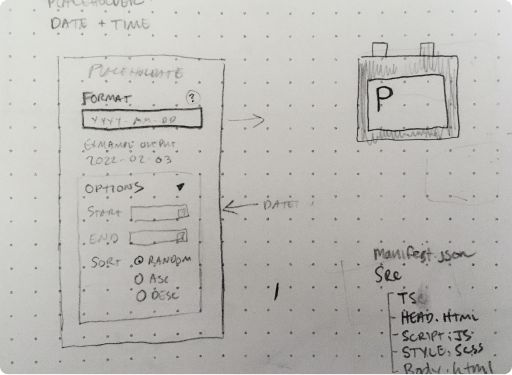 PLACEHOLDER
DATE + TIME
PLACEHOLDATE
FORMAT ?
YYYY-MM-DD
EXMAMPLE OUTPUT
2022-02-03
OPTIONS
START
END
SORT RANDOM
ASC
DESC
DATE
P
Manifest.json
Src
TS
HEAD.HTML
SCRIPT.JS
STYLE.SCSS
Body.html